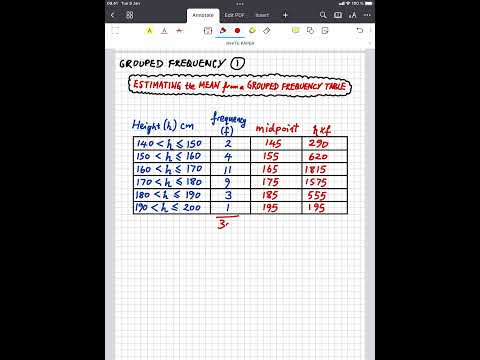 09:41 Tue 9 Jan
100 %
Annotate Edit PDF Insert
WHITE PAPER
GROUPED FREQUENCY 1
ESTIMATING the MEAN from a GROUPED FREQUENCY TABLE
Height (h) cm frequency (f) midpoint h x f
140 < h ≤ 150 2 145 290
150 < h ≤ 160 4 155 620
160 < h ≤ 170 11 165 1815
170 < h ≤ 180 9 175 1575
180 < h ≤ 190 3 185 555
190 < h ≤ 200 1 195 195
3